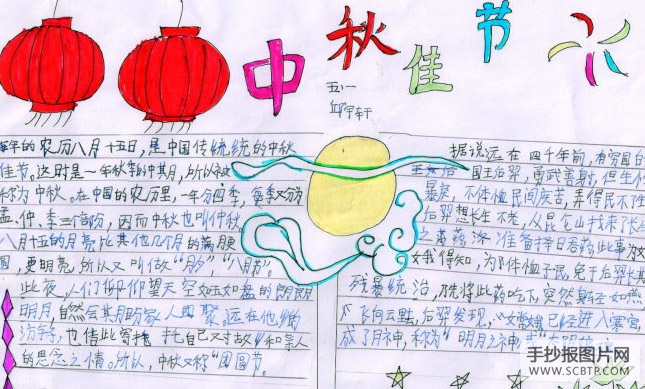 中秋佳节
五(一
年的农历八月十五日，是中国传统统的中秋
佳节。这时是一年秋季的中其月，所以被
称为中秋。在中国的农历里，一年分四季，每季又分为
孟、仲、季三个部份，因而中秋也叫仲秋。
八月十五的月亮比其他几个月的满月更
圆，更明亮，所以又叫做"月夕"，"八月节"。
此夜，人们仰望天空如玉如盘的朗朗
明月，自然会其盼家人团聚远在他乡的
游子，也借此寄托自己对故乡和亲人
的思念之情。所以，中秋又称"团圆节。
据说远在四千年前，有穷国的
国王后羿，勇武善射，但生性
暴戾，不体恤民间疾苦，弄得民不
后羿想长生不老，从昆仑山找来了长
之药 准备择日 药此事
女我得知，为了体恤子民，免于后羿长
残暴统治，乃先将此药吃下，突然身轻如燕，
飞向云端，后羿发现，嫦娥已经进入寒宫，
成了月神，称为"明月之神
手抄报图片网
WWW.SCBTP.COM